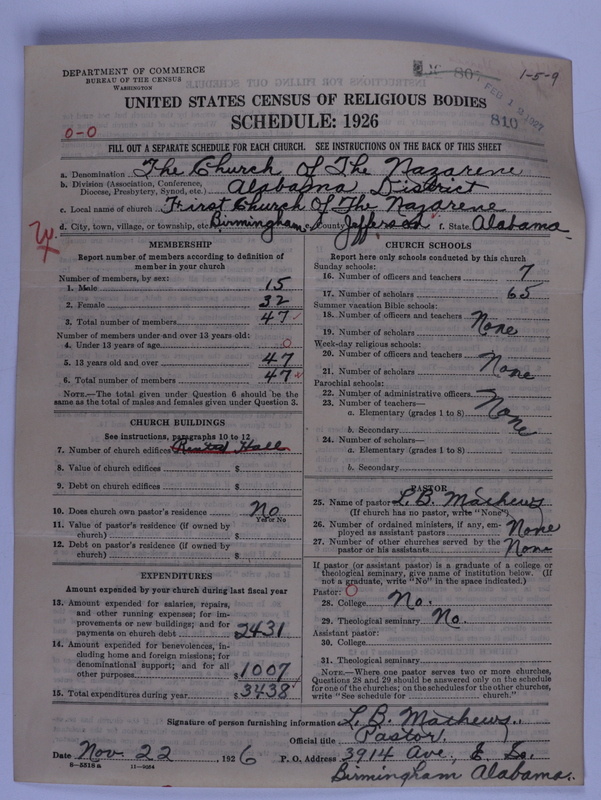 DEPARTMENT OF COMMERCE
BUREAU OF THE CENSUS
WASHINGTON
807
1-5-9
FEB 19 1927
810
UNITED STATES CENSUS OF RELIGIOUS BODIES
SCHEDULE: 1926
0-0
FILL OUT A SEPARATE SCHEDULE FOR EACH CHURCH. SEE INSTRUCTIONS ON THE BACK OF THIS SHEET
a. Denomination The Church Of The Nazarene
b. Division (Association, Conference, Diocese, Presbytery, Synod, etc.) Alabama District
c. Local name of church First Church Of The Nazarene
d. City, town, village, or township, etc. Birmingham e. County Jefferson f. State Alabama
MEMBERSHIP
Report number of members according to definition of
member in your church
Number of members, by sex:
1. Male 15
2. Female 32
3. Total number of members 47
Number of members under and over 13 years old:
4. Under 13 years of age 0
5. 13 years old and over 47
6. Total number of members 47
NOTE.—The total given under Question 6 should be the
same as the total of males and females given under Question 3.
CHURCH BUILDINGS
See instructions, paragraphs 10 to 12
7. Number of church edifices Rented Hall
8. Value of church edifices $
9. Debt on church edifices $
10. Does church own pastor's residence No
Yes or No
11. Value of pastor's residence (if owned by
church) $
12. Debt on pastor's residence (if owned by
church) $
EXPENDITURES
Amount expended by your church during last fiscal year
13. Amount expended for salaries, repairs,
and other running expenses; for im-
provements or new buildings; and for
payments on church debt $ 2431
14. Amount expended for benevolences, in-
cluding home and foreign missions; for
denominational support; and for all
other purposes $ 1007
15. Total expenditures during year $ 3438
CHURCH SCHOOLS
Report here only schools conducted by this church
Sunday schools:
16. Number of officers and teachers 7
17. Number of scholars 65
Summer vacation Bible schools:
18. Number of officers and teachers
19. Number of scholars None
Week-day religious schools:
20. Number of officers and teachers
21. Number of scholars None
Parochial schools:
22. Number of administrative officers None
23. Number of teachers—
a. Elementary (grades 1 to 8)
b. Secondary None
24. Number of scholars—
a. Elementary (grades 1 to 8)
b. Secondary
PASTOR
25. Name of pastor L. B. Mathews
(If church has no pastor, write "None")
26. Number of ordained ministers, if any, em-
ployed as assistant pastors None
27. Number of other churches served by the
pastor or his assistants None
If pastor (or assistant pastor) is a graduate of a college or
theological seminary, give name of institution below. (If
not a graduate, write "No" in the space indicated.)
Pastor: 0
28. College No.
29. Theological seminary No.
Assistant pastor:
30. College
31. Theological seminary
NOTE.—Where one pastor serves two or more churches,
Questions 28 and 29 should be answered only on the schedule
for one of the churches; on the schedules for the other churches,
write "See schedule for church."
Signature of person furnishing information L. B. Mathews.
Official title Pastor
Date Nov. 22 1926 P. O. Address 3914 Ave, E So.
8-5318 a 11-9084
Birmingham Alabama.